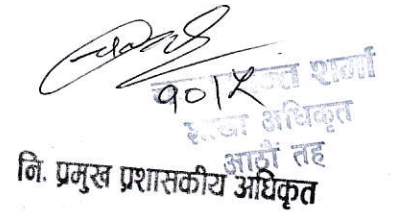 १०।५
शर्मा
शाखा अधिकृत
आठौं तह
नि. प्रमुख प्रशासकीय अधिकृत